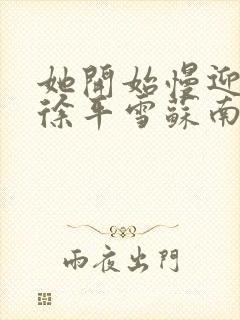 她開始慢迎
徐平雪蘇南
雨夜出門